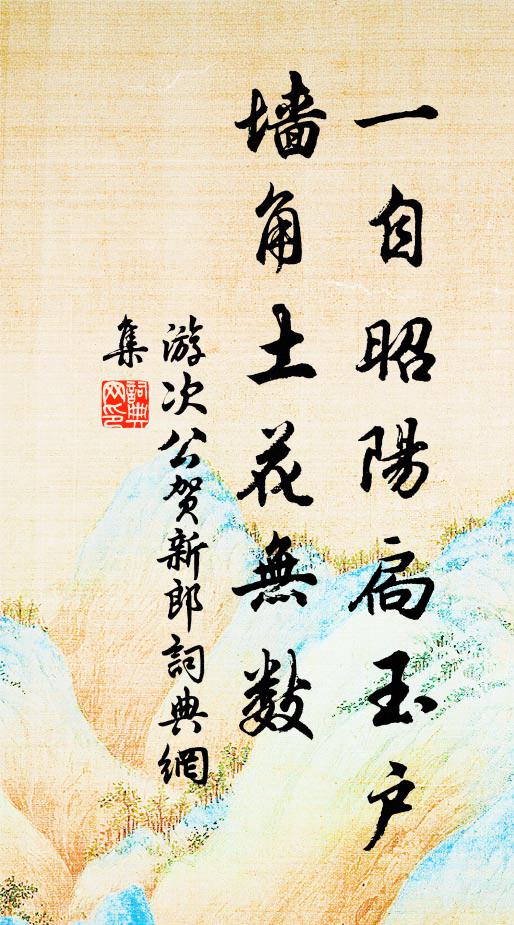 一自昭陽扃玉户
墙角土花無数
游次公賀新郎詞典網
集
詞典
网印